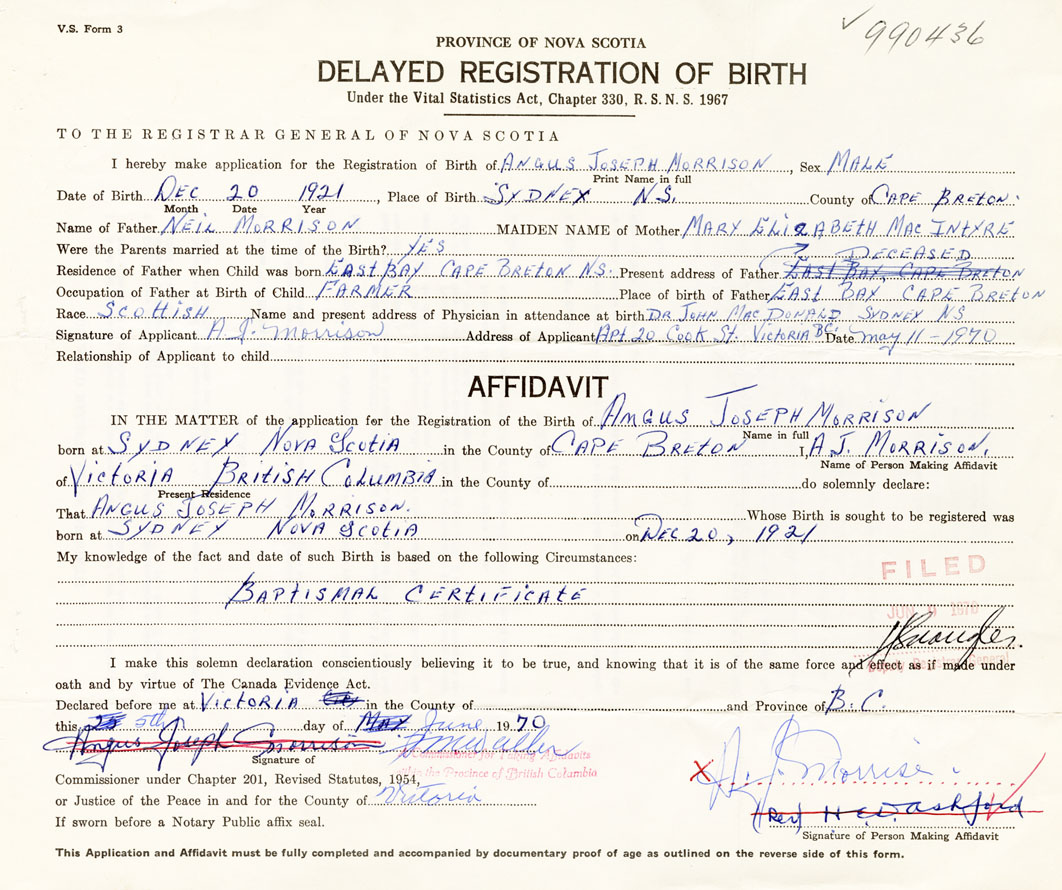 V.S. Form 3
✓990436
PROVINCE OF NOVA SCOTIA
DELAYED REGISTRATION OF BIRTH
Under the Vital Statistics Act, Chapter 330, R. S. N. S. 1967
TO THE REGISTRAR GENERAL OF NOVA SCOTIA
I hereby make application for the Registration of Birth of ANGUS JOSEPH MORRISON, Sex MALE
Print Name in full
Date of Birth DEC 20 1921, Place of Birth SYDNEY NS. County of CAPE BRETON.
Month Date Year
Name of Father NEIL MORRISON MAIDEN NAME of Mother MARY ELIZABETH MACINTYRE
Were the Parents married at the time of the Birth? YES DECEASED
Residence of Father when Child was born EAST BAY CAPE BRETON NS. Present address of Father EAST BAY, CAPE BRETON
Occupation of Father at Birth of Child FARMER Place of birth of Father EAST BAY CAPE BRETON
Race SCOTTISH Name and present address of Physician in attendance at birth DR JOHN MACDONALD SYDNEY NS
Signature of Applicant A. J. Morrison Address of Applicant APT 20 COOK ST. VICTORIA BC. Date May 11 - 1970
Relationship of Applicant to child
AFFIDAVIT
IN THE MATTER of the application for the Registration of the Birth of ANGUS JOSEPH MORRISON
Name in full
born at SYDNEY NOVA SCOTIA in the County of CAPE BRETON I, A.J. MORRISON,
Name of Person Making Affidavit
of VICTORIA BRITISH COLUMBIA in the County of do solemnly declare:
Present Residence
That ANGUS JOSEPH MORRISON. Whose Birth is sought to be registered was
born at SYDNEY NOVA SCOTIA on DEC 20, 1921
My knowledge of the fact and date of such Birth is based on the following Circumstances:
FILED
BAPTISMAL CERTIFICATE
JUN 9 1970
I make this solemn declaration conscientiously believing it to be true, and knowing that it is of the same force and effect as if made under
oath and by virtue of The Canada Evidence Act.
Declared before me at VICTORIA in the County of and Province of B.C.
this 25 5th day of MAY June 1970
Angus Joseph Morrison
Signature of
Commissioner for Taking Affidavits
within the Province of British Columbia
X A. J. Morrison
Commissioner under Chapter 201, Revised Statutes, 1954,
or Justice of the Peace in and for the County of Victoria
(Rev) H.E.D. Ashford
If sworn before a Notary Public affix seal.
Signature of Person Making Affidavit
This Application and Affidavit must be fully completed and accompanied by documentary proof of age as outlined on the reverse side of this form.